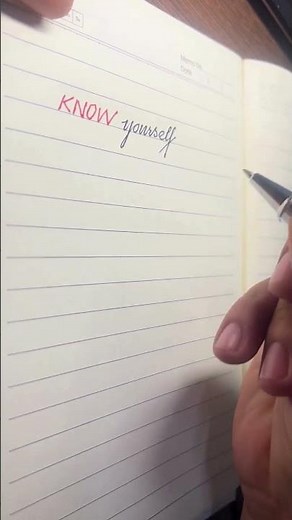 KNOW yourself